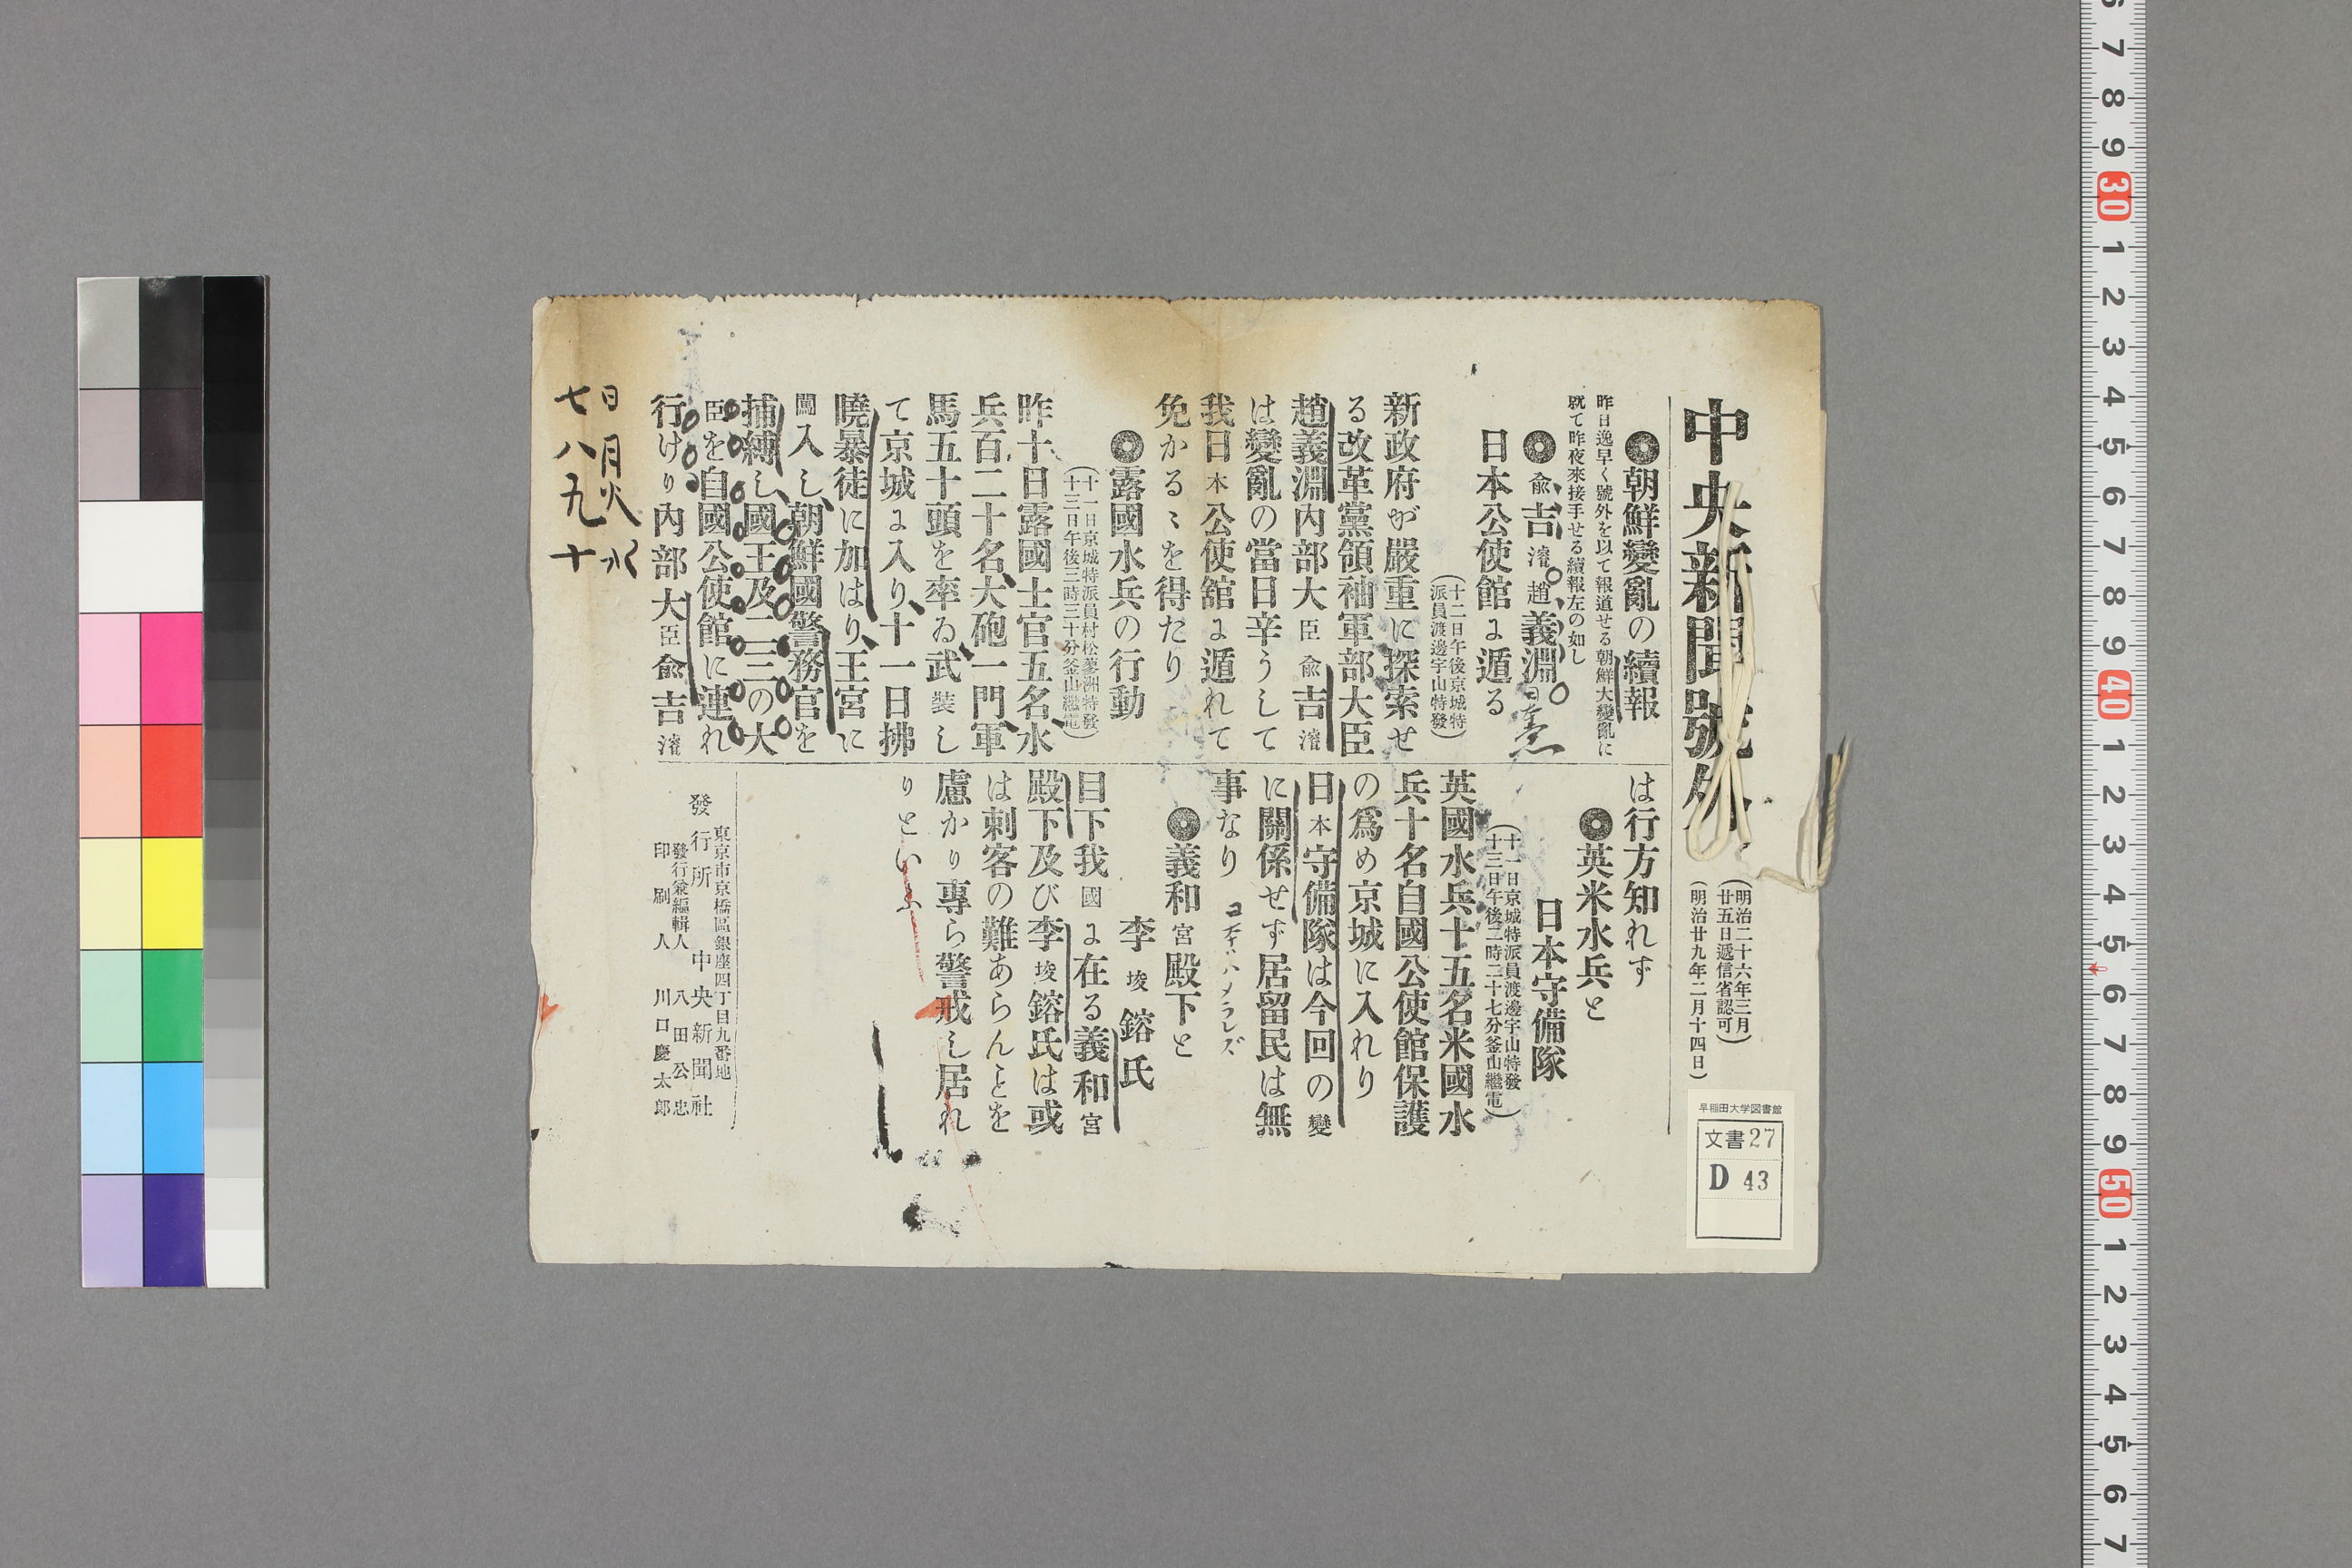 中央新聞號外
(明治二十六年三月
廿五日遞信省認可)
(明治廿九年二月十四日)
◉朝鮮變亂の續報
昨日逸早く號外を以て報道せる朝鮮大變亂に
就て昨夜來接手せる續報左の如し
◉兪吉濬趙義淵
日本公使館に遁る
(十二日午後京城特
派員渡邊宇山特發)
新政府が嚴重に探索せ
る改革黨領袖軍部大臣
趙義淵內部大臣兪吉濬
は變亂の當日辛うして
我日本公使舘に遁れて
免かるゝを得たり
◉露國水兵の行動
(十一日京城特派員村松 洲特發
十三日午後三時三十分釜山繼電)
昨十日露國士官五名、水
兵百二十名、大砲一門、軍
馬五十頭を率ゐ、武裝し
て京城に入り、十一日拂
曉暴徒に加はり、王宮に
闖入し、朝鮮國警務官を
捕縛し、國王及二三の大
臣を自國公使館に連れ
行けり內部大臣兪吉濬
は行方知れず
◉英米水兵と
日本守備隊
(十一日京城特派員渡邊宇山特發
十三日午後二時二十七分釜山繼電)
英國水兵十五名米國水
兵十名自國公使館保護
の爲め京城に入れり
日本守備隊は今回の變
に關係せず居留民は無
事なり
◉義和宮殿下と
李埈鎔氏
目下我國に在る義和宮
殿下及び李埈鎔氏は或
は刺客の難あらんとを
慮かり專ら警戒し居れ
りといふ
東京市京橋區銀座四丁目九番地
發行所 中央新聞社
發行兼編輯人 八田公忠
印刷人 川口慶太郞
日月火水
七八九十
早稲田大学図書館
文書27
D 43
6 7 8 9 30 1 2 3 4 5 6 7 8 9 40 1 2 3 4 5 6 7 8 9 50 1 2 3 4 5 6 7